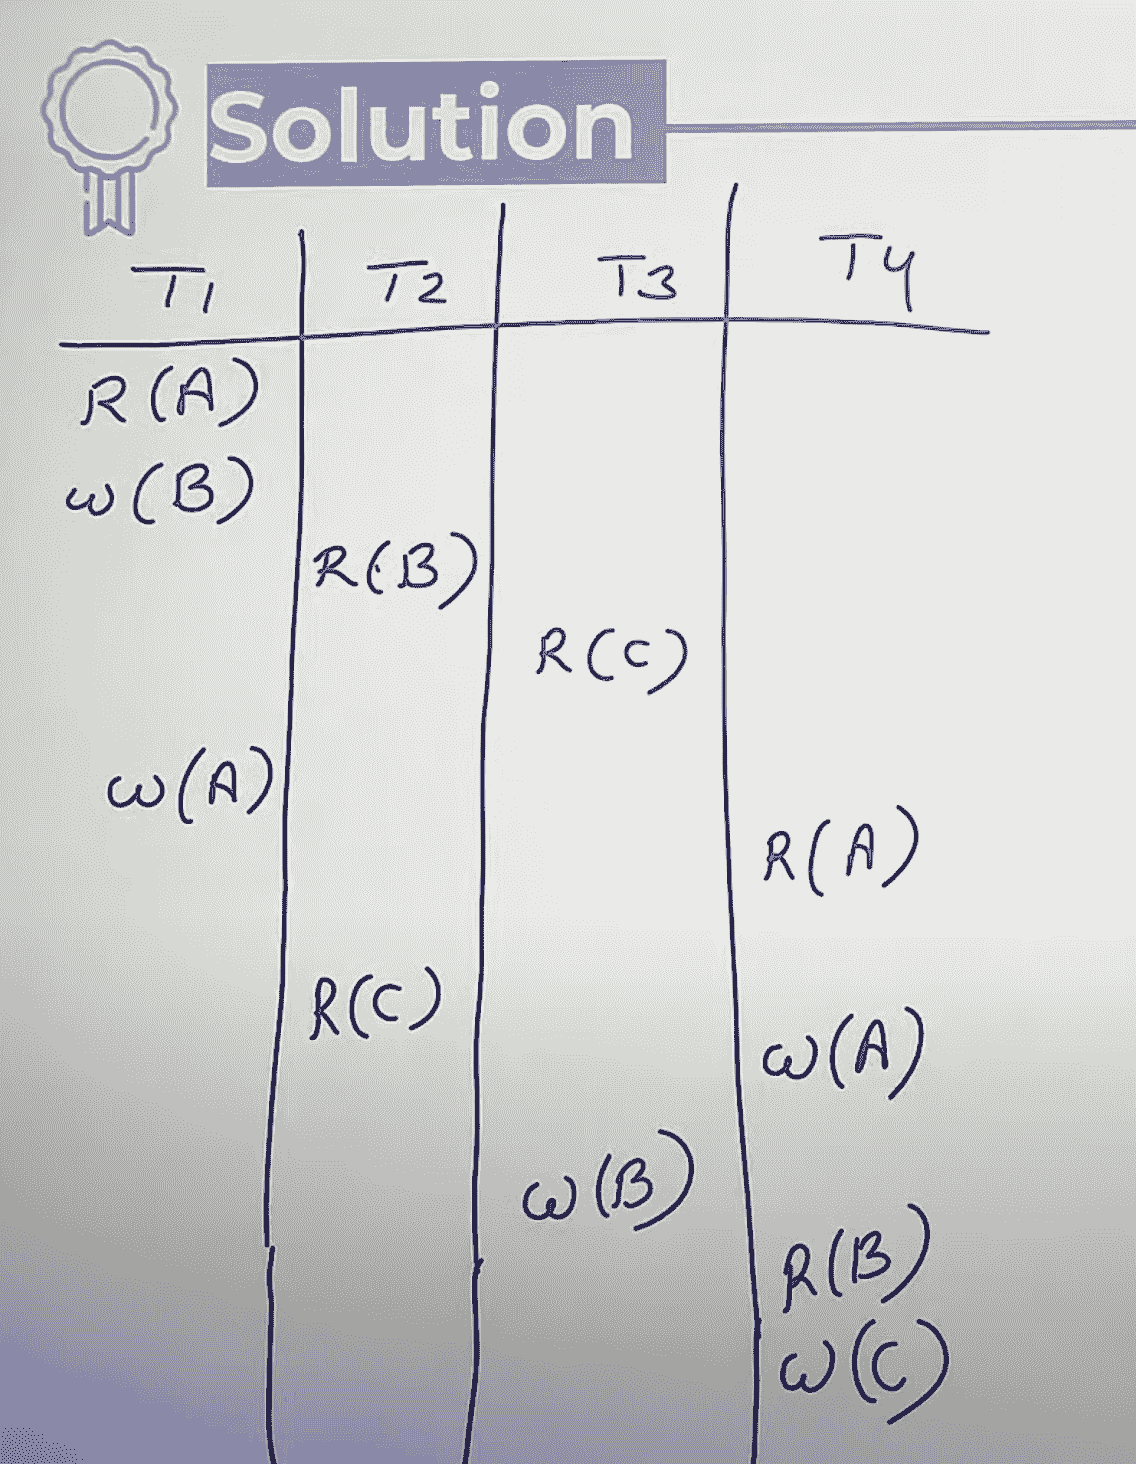 Solution
T1 T2 T3 T4
R(A)
W(B)
R(B)
R(C)
W(A)
R(A)
R(C)
W(A)
W(B)
R(B)
W(C)